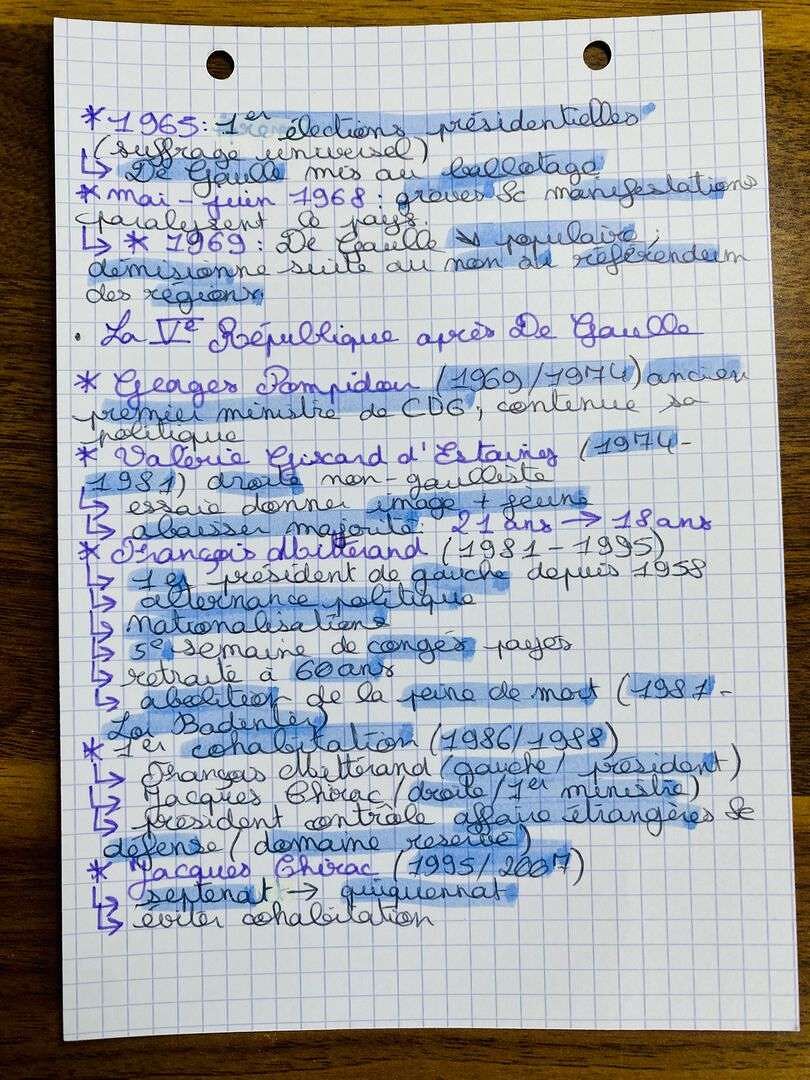 * 1965 : 1er élections présidentielles
(suffrage universel)
↳ De Gaulle mis au ballotage
* mai - juin 1968 : graves & manifestations
paralysent le pays.
↳ * 1969 : De Gaulle ↘ populaire ;
démisionne suite au non au référendum
des régions
. La Ve République après De Gaulle
* Georges Pompidou (1969/1974) ancien
premier ministre de CDG ; continue sa
politique
* Valérie Giscard d'Estaing (1974-
1981) droite non-gaulliste
↳ essaie donner image + jeune
↳ abaisser majorité : 21 ans → 18 ans
* François Mitterand (1981 - 1995)
↳ 1er président de gauche depuis 1958
↳ alternance politique
↳ nationalisations
↳ 5e semaine de congés payes
↳ retraite à 60 ans
↳ abolition de la peine de mort (1981 -
Loi Badenter)
* 1er cohabitation (1986/1988)
↳ François Mitterand (gauche / président)
↳ Jacques Chirac (droite / 1er ministre)
↳ président contrôle affaire étrangères &
défense (domaine reservé)
* Jacques Chirac (1995/2007)
↳ septenat → quiquennat
↳ éviter cohabitation